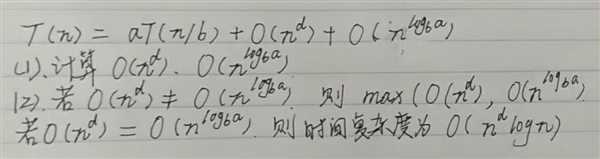 T(n) = aT(n/b) + O(n^d) + O(n^{log_b a})
(1). 计算 O(n^d). O(n^{log_b a})
(2). 若 O(n^d) ≠ O(n^{log_b a}) 则 max(O(n^d), O(n^{log_b a})
若 O(n^d) = O(n^{log_b a}). 则时间复杂度为 O(n^d log n)